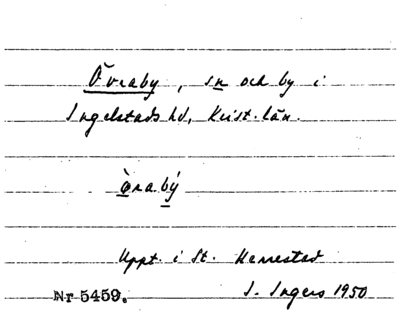 Övraby, sn och by i
Ingelstads hd, Krist. län.
ø̀rabý
Uppt. i St. Herrestad
Nr 5459. I. Ingers 1950